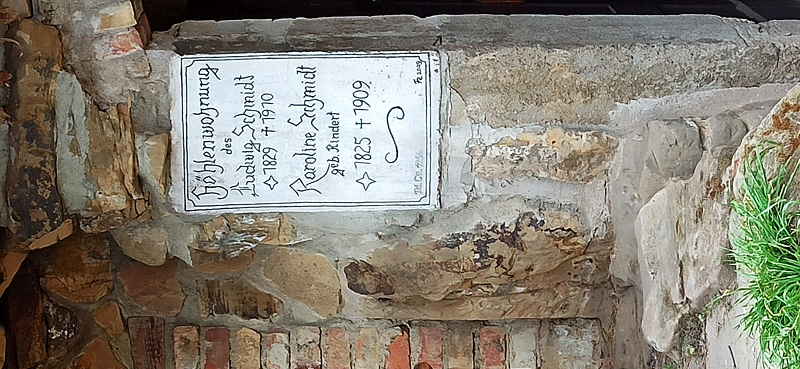 Höhlenwohnung
des
Ludwig Schmidt
✧1829 +1910
Karoline Schmidt
geb. Kindert
✧1825 +1909